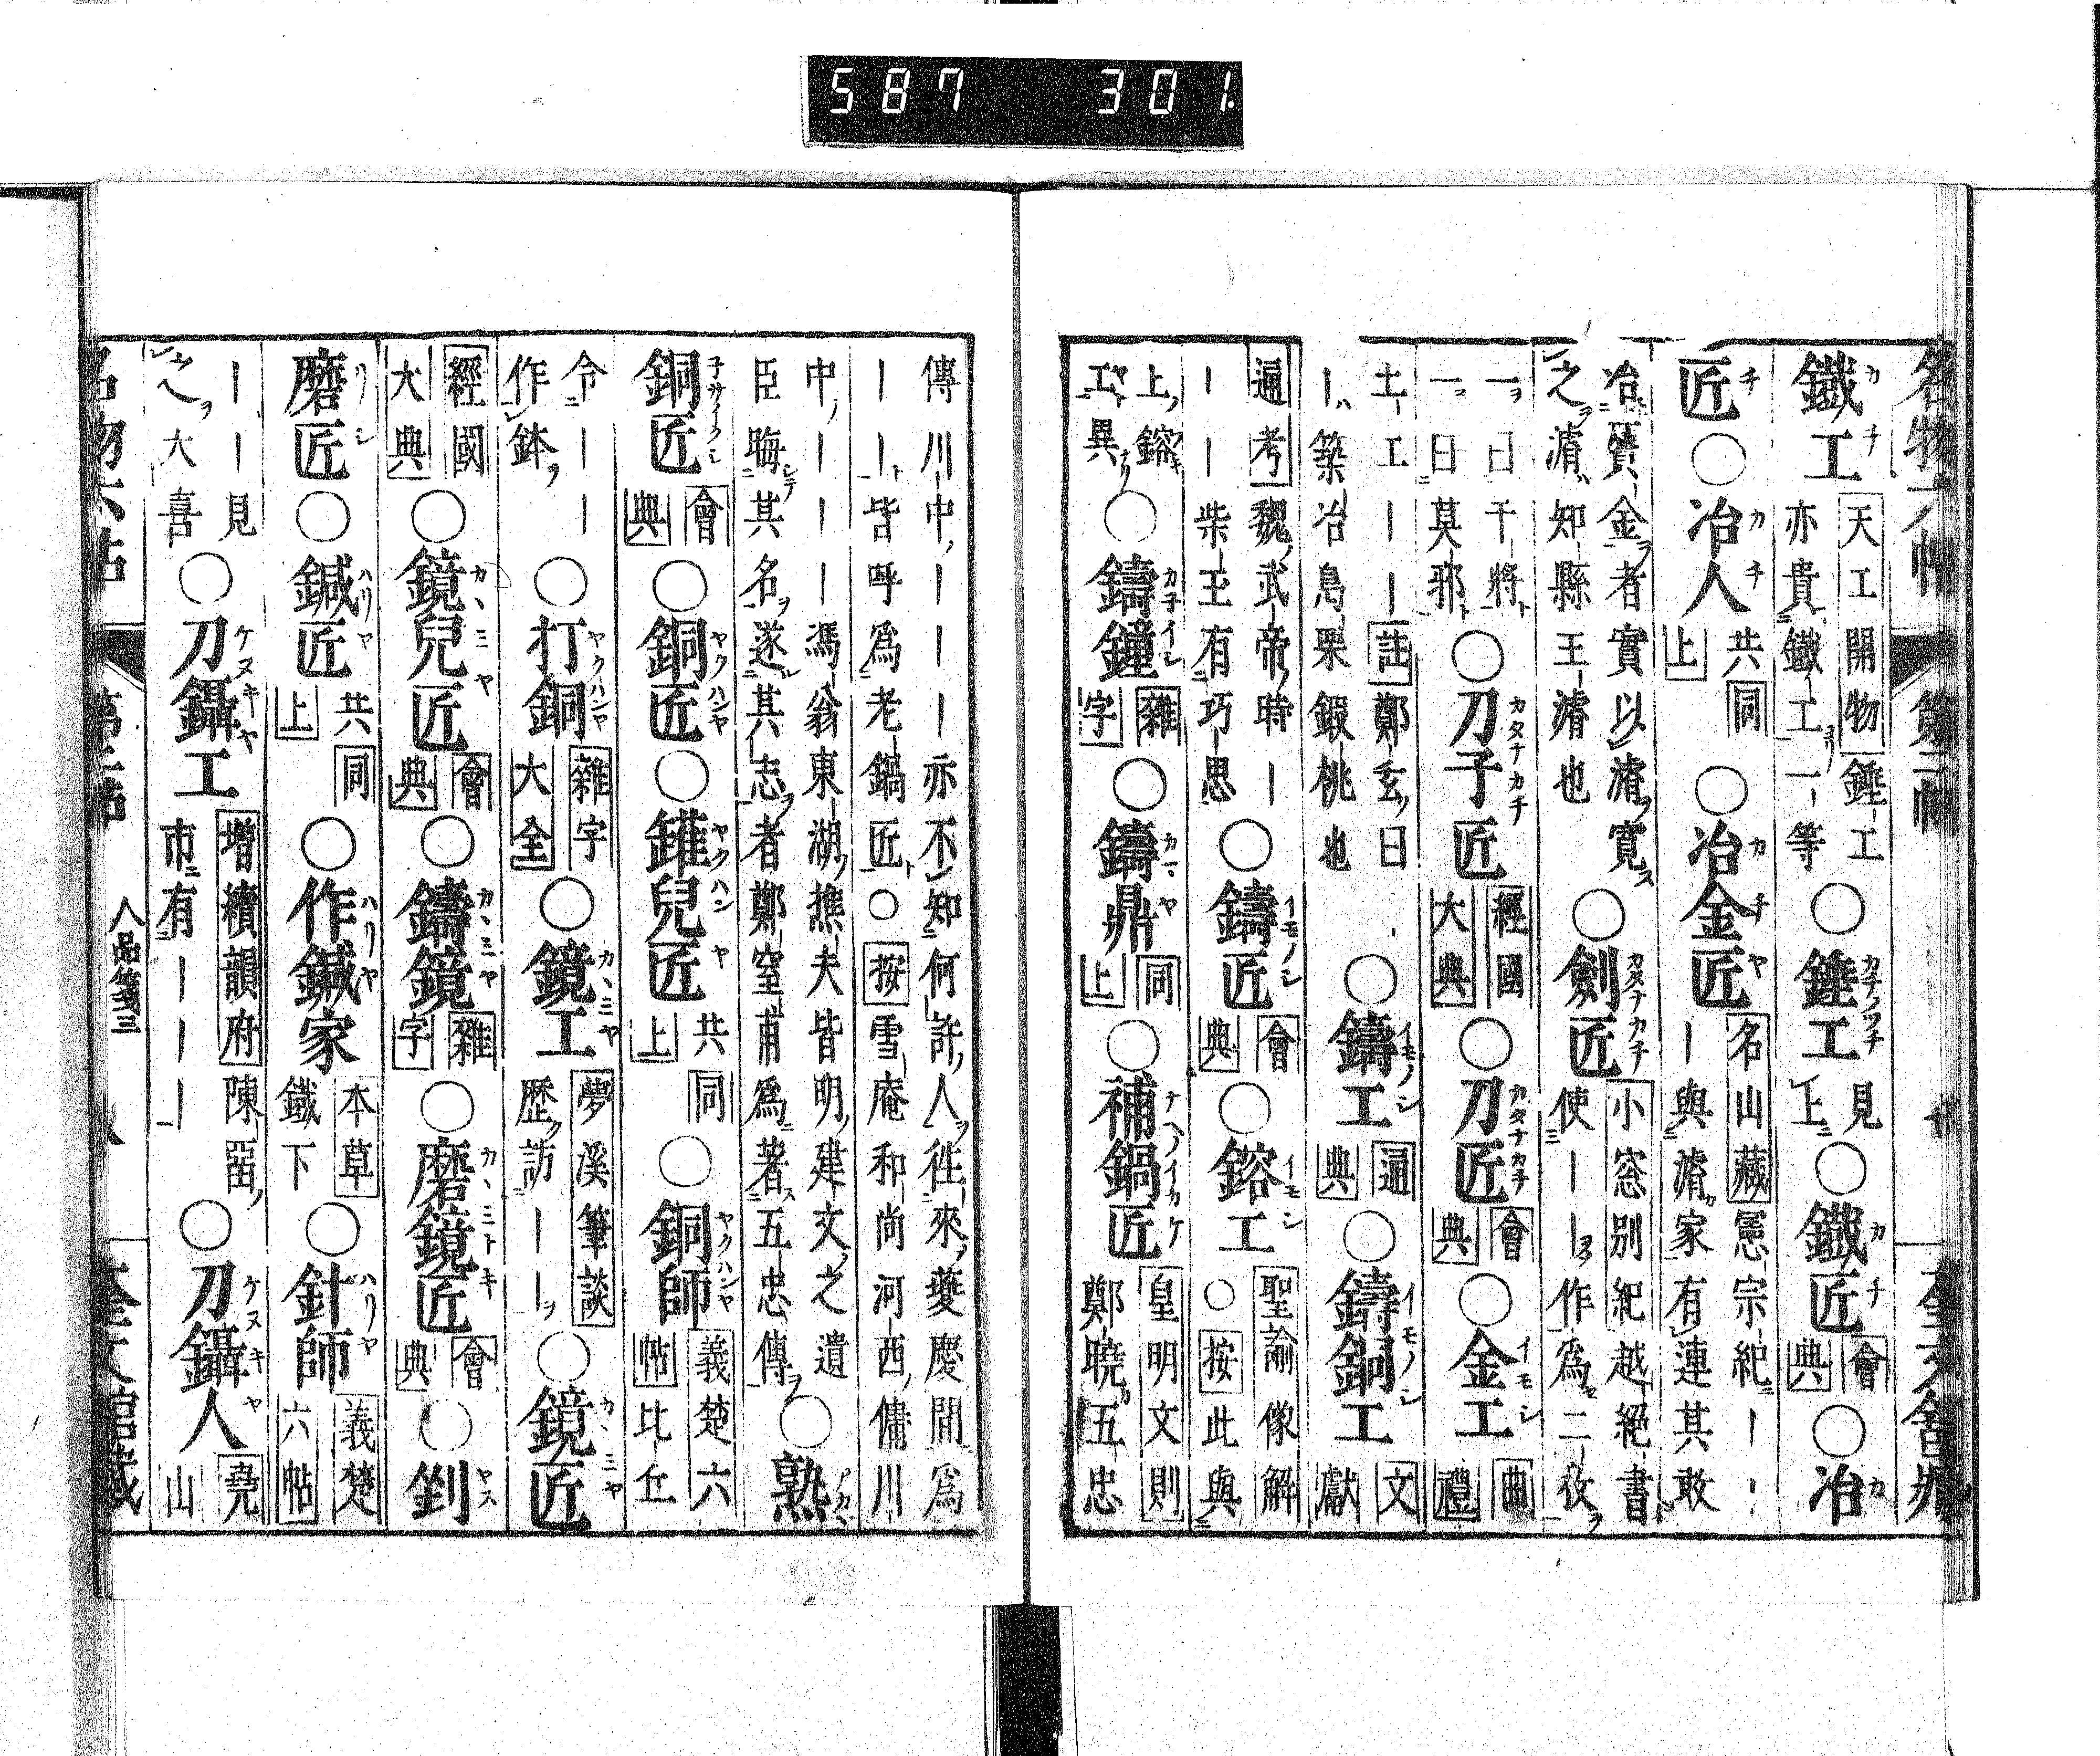 587 301.
鐵工 天工開物 錘工亦貴鐵工一等 ○錘工 見上 ○鐵匠 會典 ○冶
匠 ○冶人 共同上 ○冶金匠 名山藏 憲宗紀ーー ー與濬家有連其敢
冶贋金者實以濬寬之濬知縣王濬也 ○劍匠 小窓別紀 越絕書 使ーー作為二枚
一曰干將一曰莫邪 ○刀子匠 經國大典 ○刀匠 會典 ○金工 曲禮
土工ーー 註 鄭玄曰ー築冶鳧栗鍜桃也 ○鑄工 通典 ○鑄銅工 文獻
通考 魏武帝時ーーー柴玉有巧思 ○鑄匠 會典 ○鎔工 聖諭像解 ○按此與
上鎔工異 ○鑄鐘 雜字 ○鑄鼎 同上 ○補鍋匠 皇明文則 鄭曉五忠
傳川中ーーー亦不知何許人徃來夔慶間為ーー皆呼為老鍋匠 ○按雪庵和尚河西傭川
中ーーー馮翁東湖樵夫皆明建文之遺臣晦其名遂其志者鄭窒甫為著五忠傳 ○熟
銅匠 會典 ○銅匠 ○錐兒匠 共同上 ○銅師 義楚六帖 比丘
令ーー作鉢 ○打銅 雜字大全 ○鏡工 夢溪筆談 歷訪ーー ○鏡匠
經國大典 ○鏡兒匠 會典 ○鑄鏡 雜字 ○磨鏡匠 會典 ○剉
磨匠 ○鍼匠 共同上 ○作鍼家 本草 鐵下 ○針師 義楚六帖
ーー見之人大喜 ○刀鑷工 增續韻府 陳留市有ーーー ○刀鑷人 堯山
名物六帖 第二帖 人品箋三